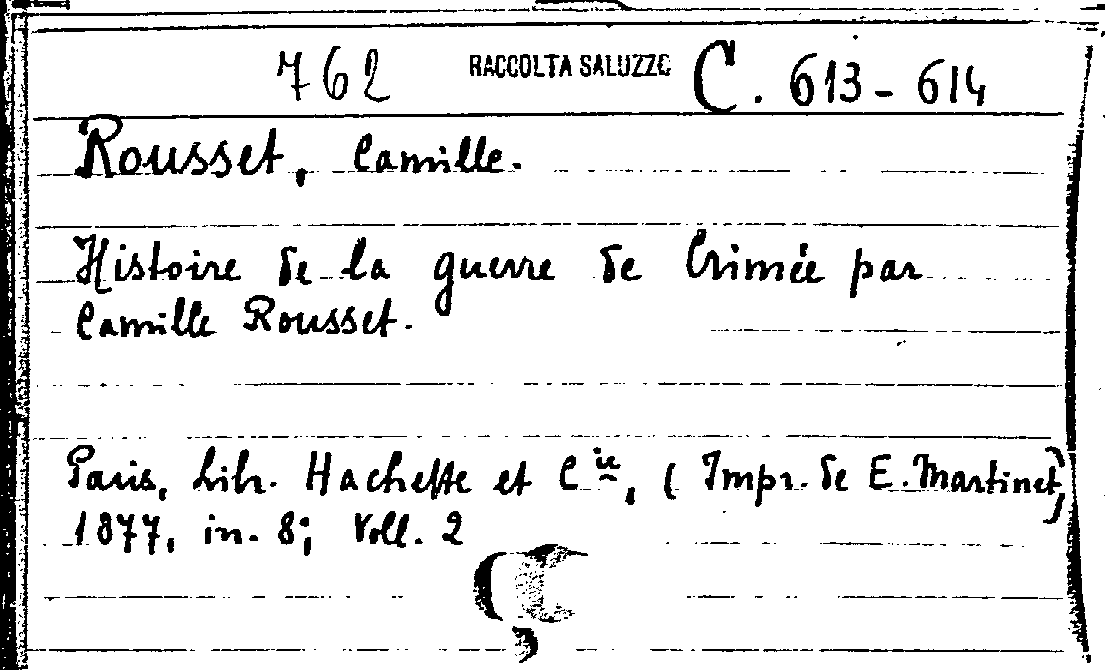 762 RACCOLTA SALUZZO C. 613-614
Rousset, Camille.
Histoire de la guerre de Crimée par
Camille Rousset.
Paris, Libr. Hachette et Cie, (Impr. de E. Martinet)
1877, in-8; Voll. 2